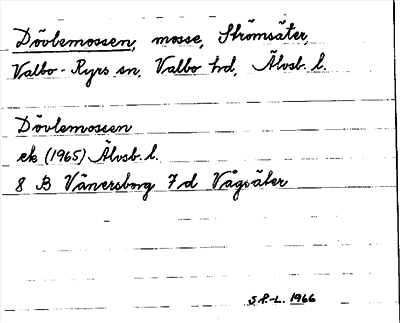 Dövlemossen, mosse, Strömsäter,
Valbo-Ryrs sn, Valbo hd, Älvsb. l.
Dövlemossen
ek (1965) Älvsb. l.
8 B Vänersborg 7 d Vågsäter
S.F-L. 1966